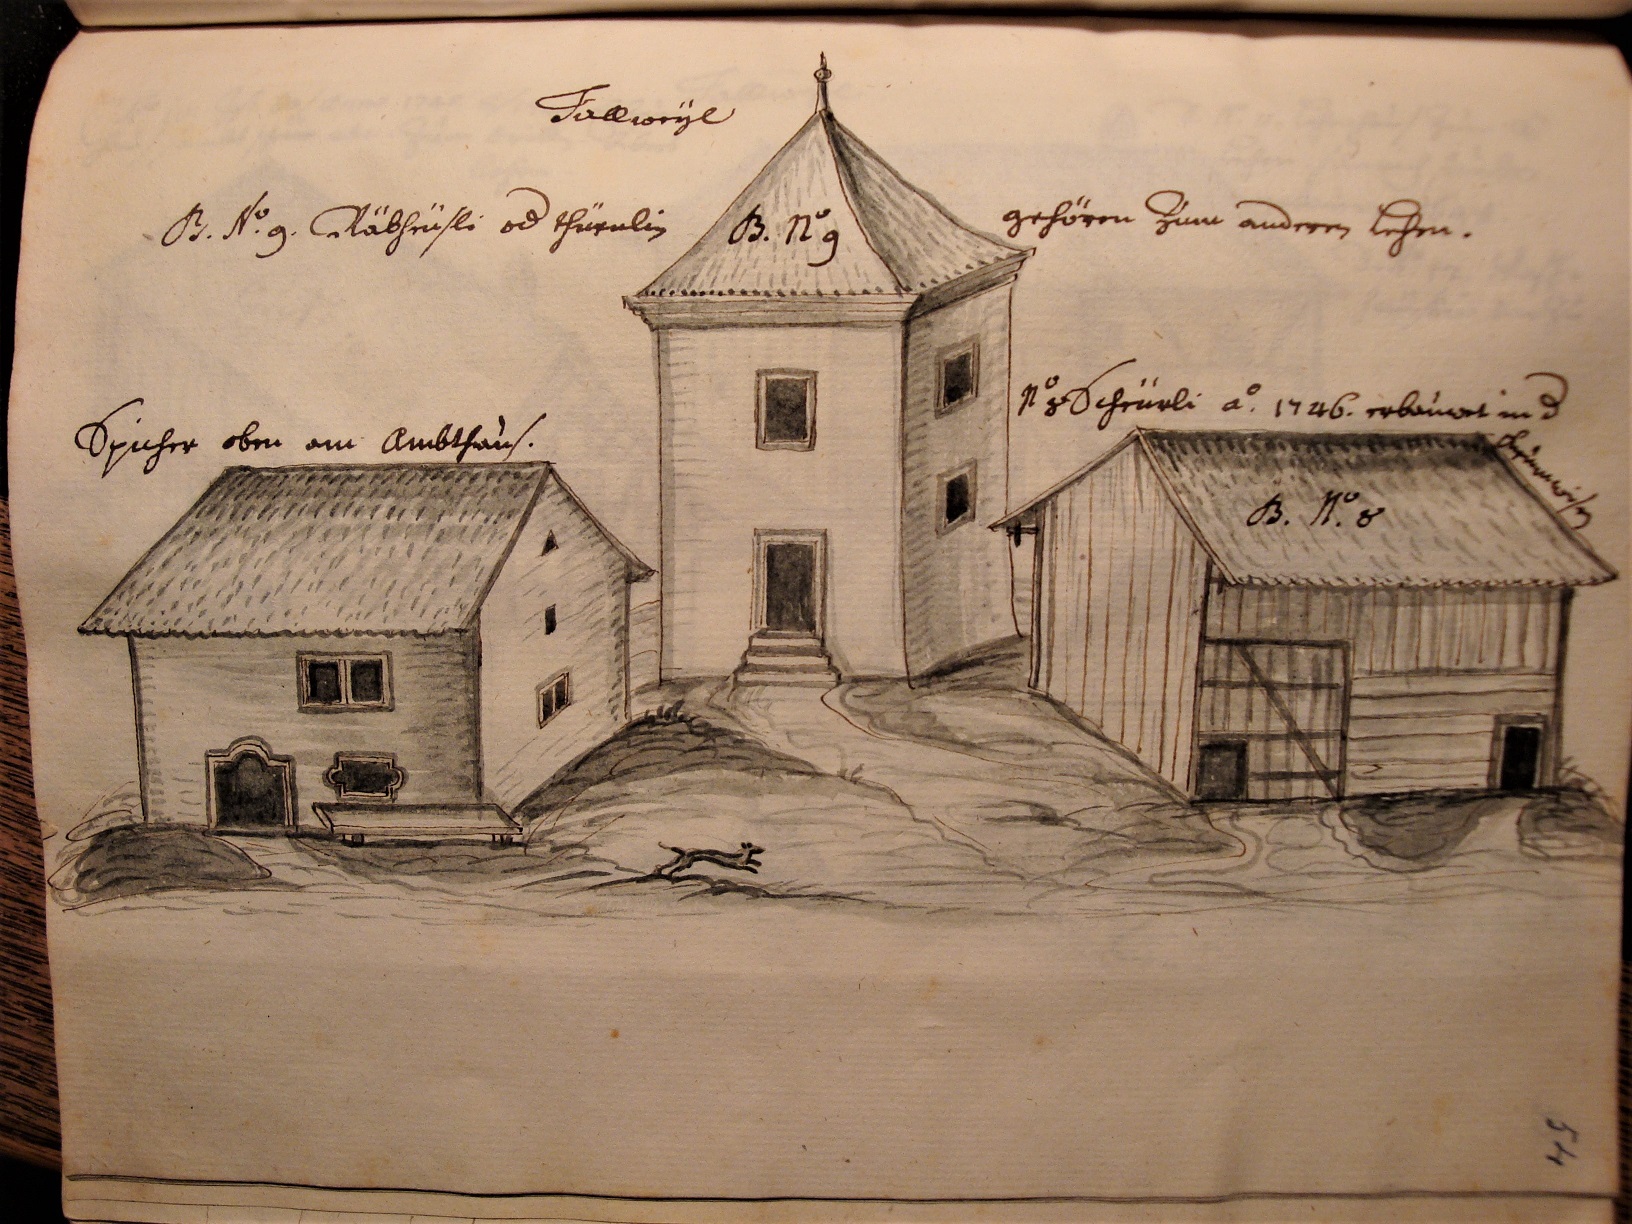 Fallweÿl
B. No. 9. Räbheüsli od thürnlin
B. No 9
gehören zum anderen Lehen.
Spicher oben am Ambthaus.
No 8 Scheürli ao. 1746. erbauwet in d
B. No. 8
54